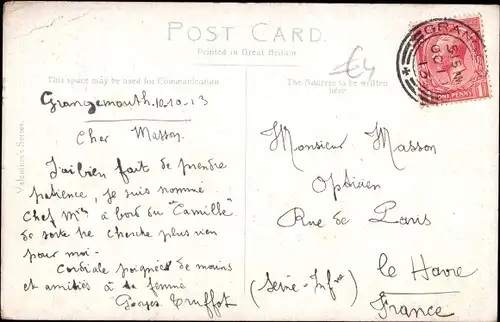 POST CARD.
Printed in Great Britain
This space may be used for Communication
The Address to be written
here
Valentine's Series
£4
GRANGEM
5.45
OC
13
ONE PENNY
Grangemouth. 10.10.13
Cher Masson
J'ai bien fait de prendre
patience, je suis nommé
Chef Mcn à bord du "Camille"
de sorte ne cherche plus rien
pour moi -
Cordiale poignée de mains
et amitiés à ta femme
Georges Truffot
Monsieur Masson
Opticien
Rue de Paris
le Havre
(Seine-Infre)
France